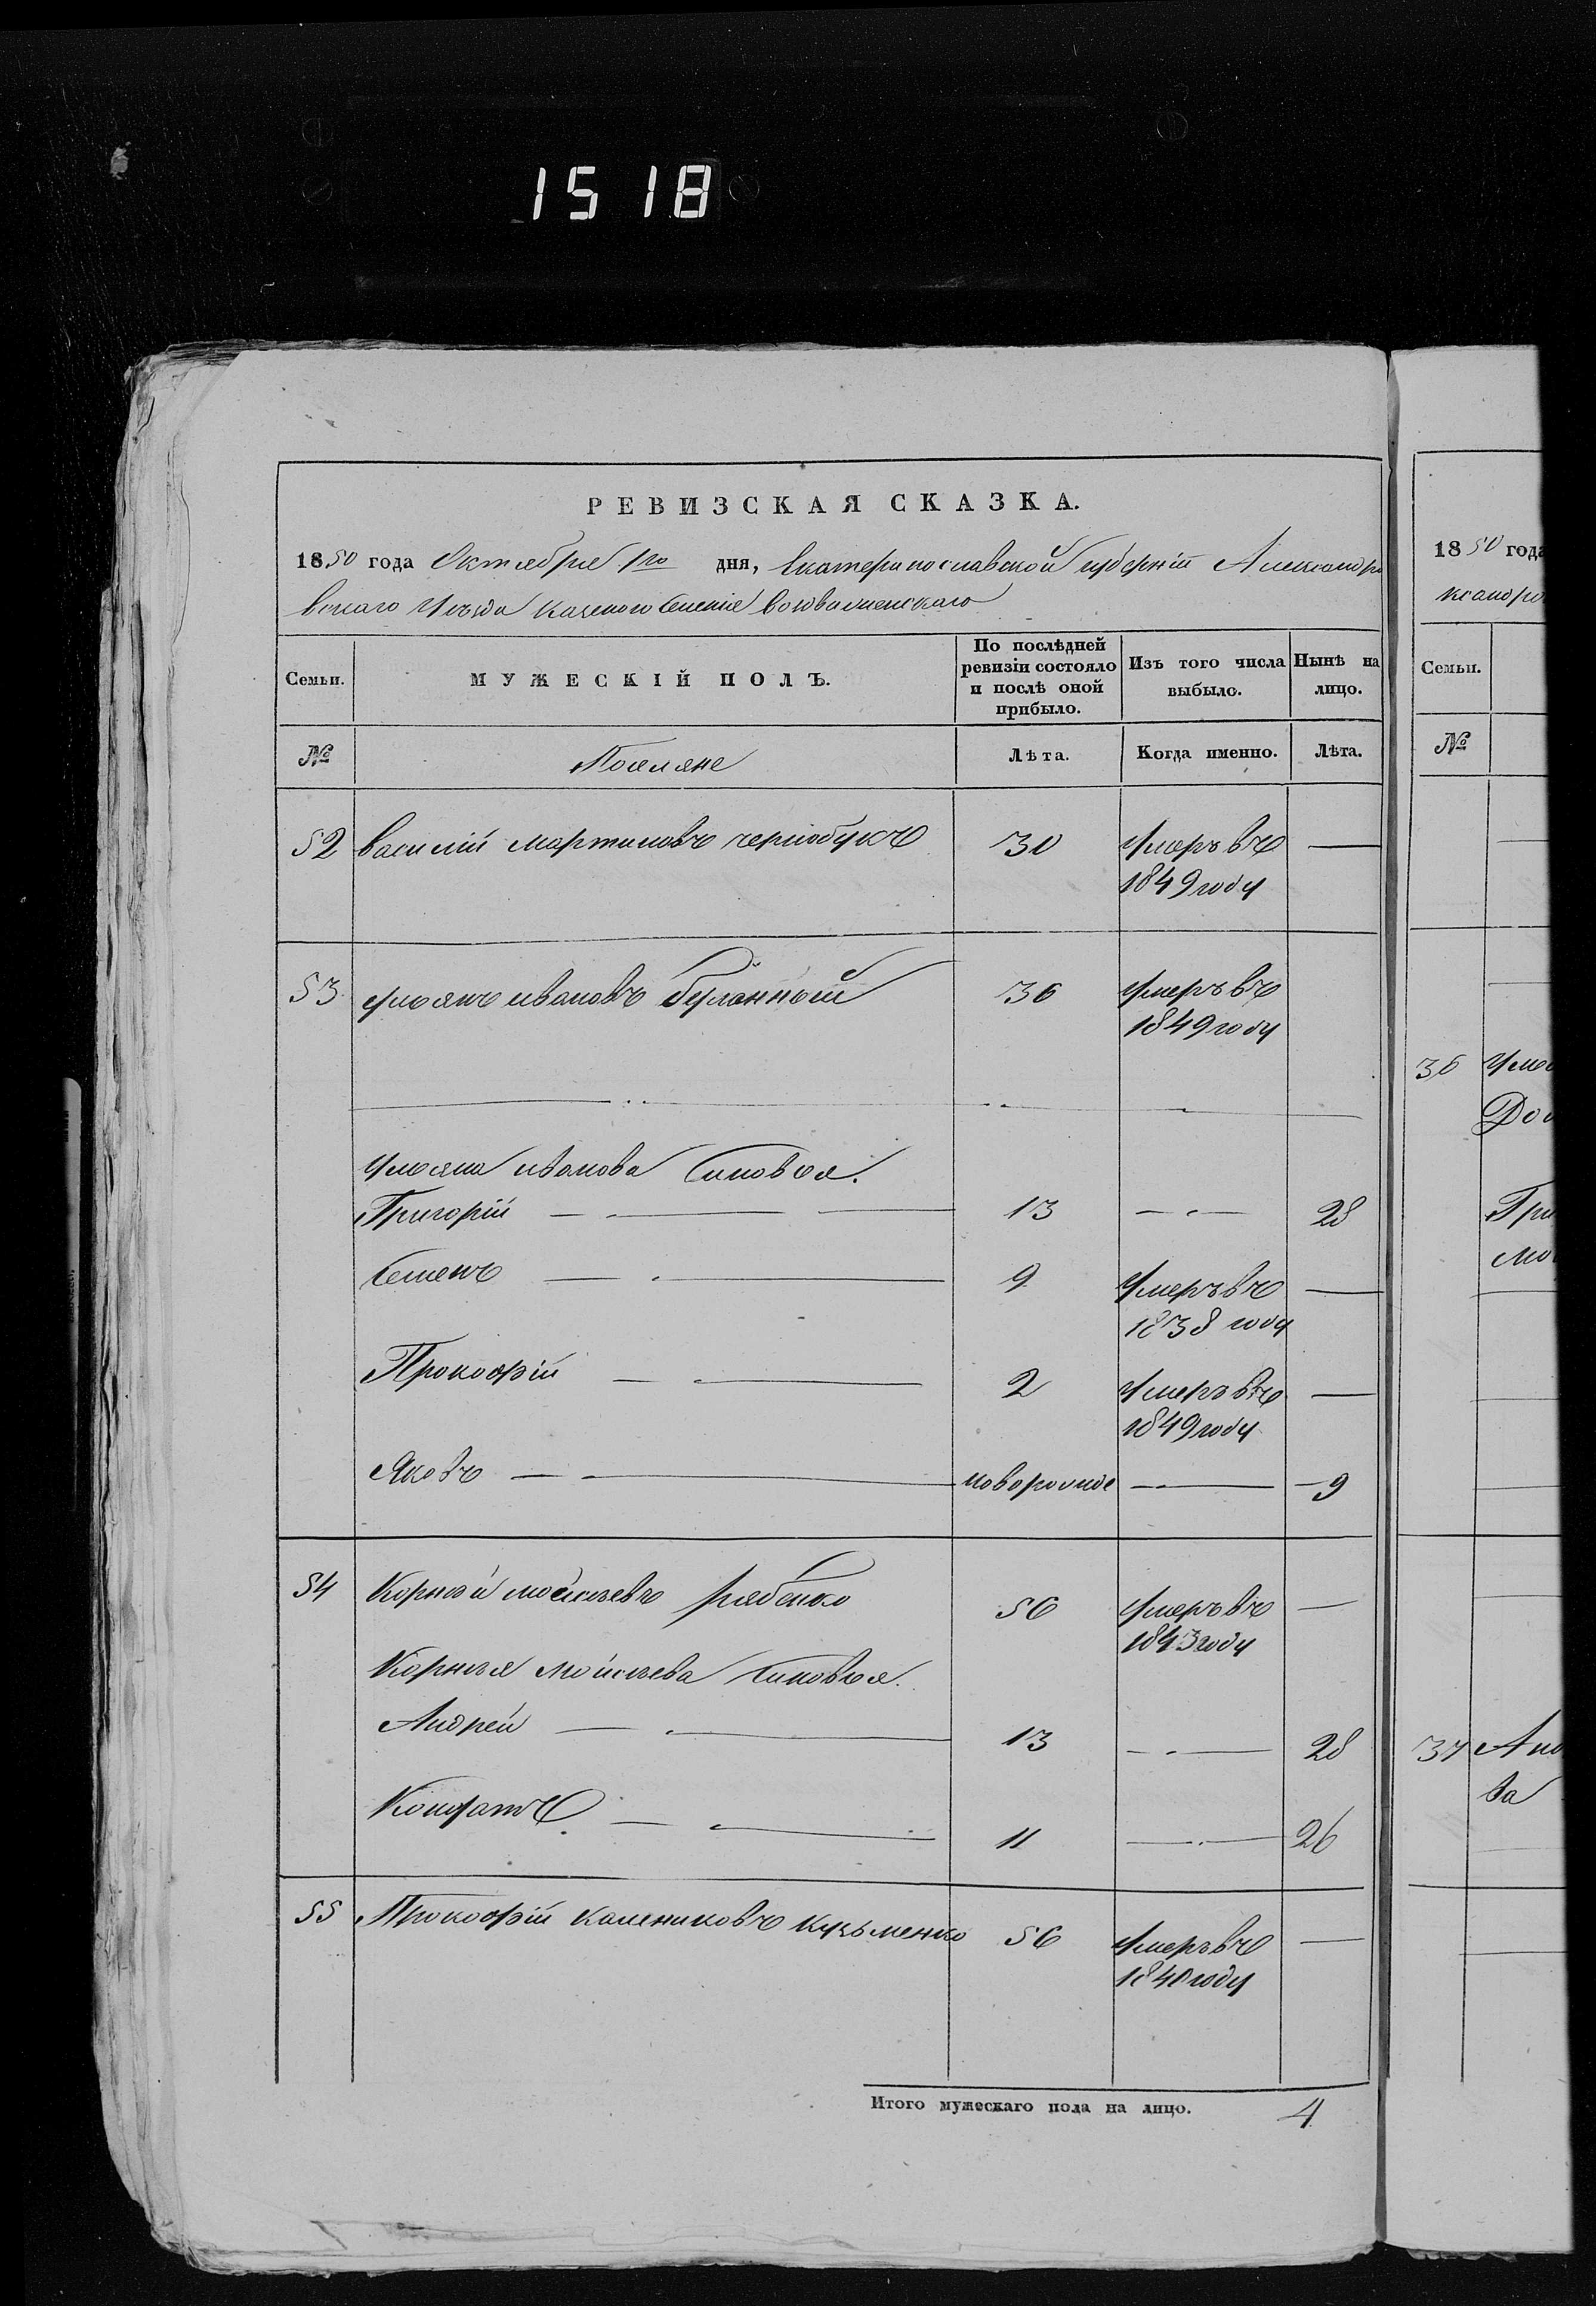 1518
РЕВИЗСКАЯ СКАЗКА.
1850 года Октября 1го дня, Екатеринославской губерніи Александро
вскаго Уезда казеного Селенія
Семьи.
МУЖЕСКІЙ ПОЛЪ.
По послѣдней ревизіи состояло и послѣ оной прибыло.
Изъ того числа выбыло.
Нынѣ на лицо.
№
Поселяне
Лѣта.
Когда именно.
Лѣта.
52 василій мартиновъ чернобукъ 30 Умеръ въ —
1849 году
53 ульянъ ивановъ буланный 36 Умеръ въ
1849 году
Ульяна иванова Синовья.
Григорій — — 13 — — 28
Семенъ — — 9 Умеръ въ —
1838 году
Прокофій — — 2 Умеръ въ —
1849 году
Яковъ — — новорочное — — 9
54 Корнѣй мойсѣевъ рябенко 56 Умеръ въ —
1843 году
Корнѣя мойсѣева Синовья.
Андрей — — 13 — — 28
Кондратъ — — 11 — — 26
55 Прокофій калениковъ кузьменко 56 Умеръ въ —
1840 году
Итого мужескаго пола на лицо. 4
1850 года
ксандро
Семьи.
№
36 Улья
Гри
37 Ан
ва